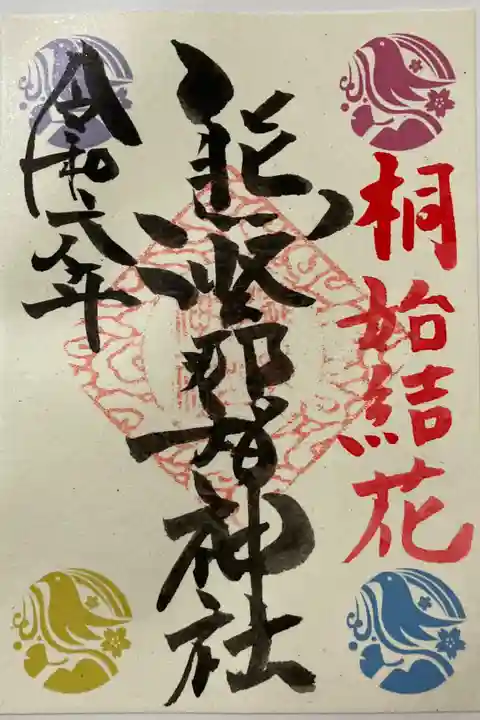 桐始結花
熊野那智神社
令和六年